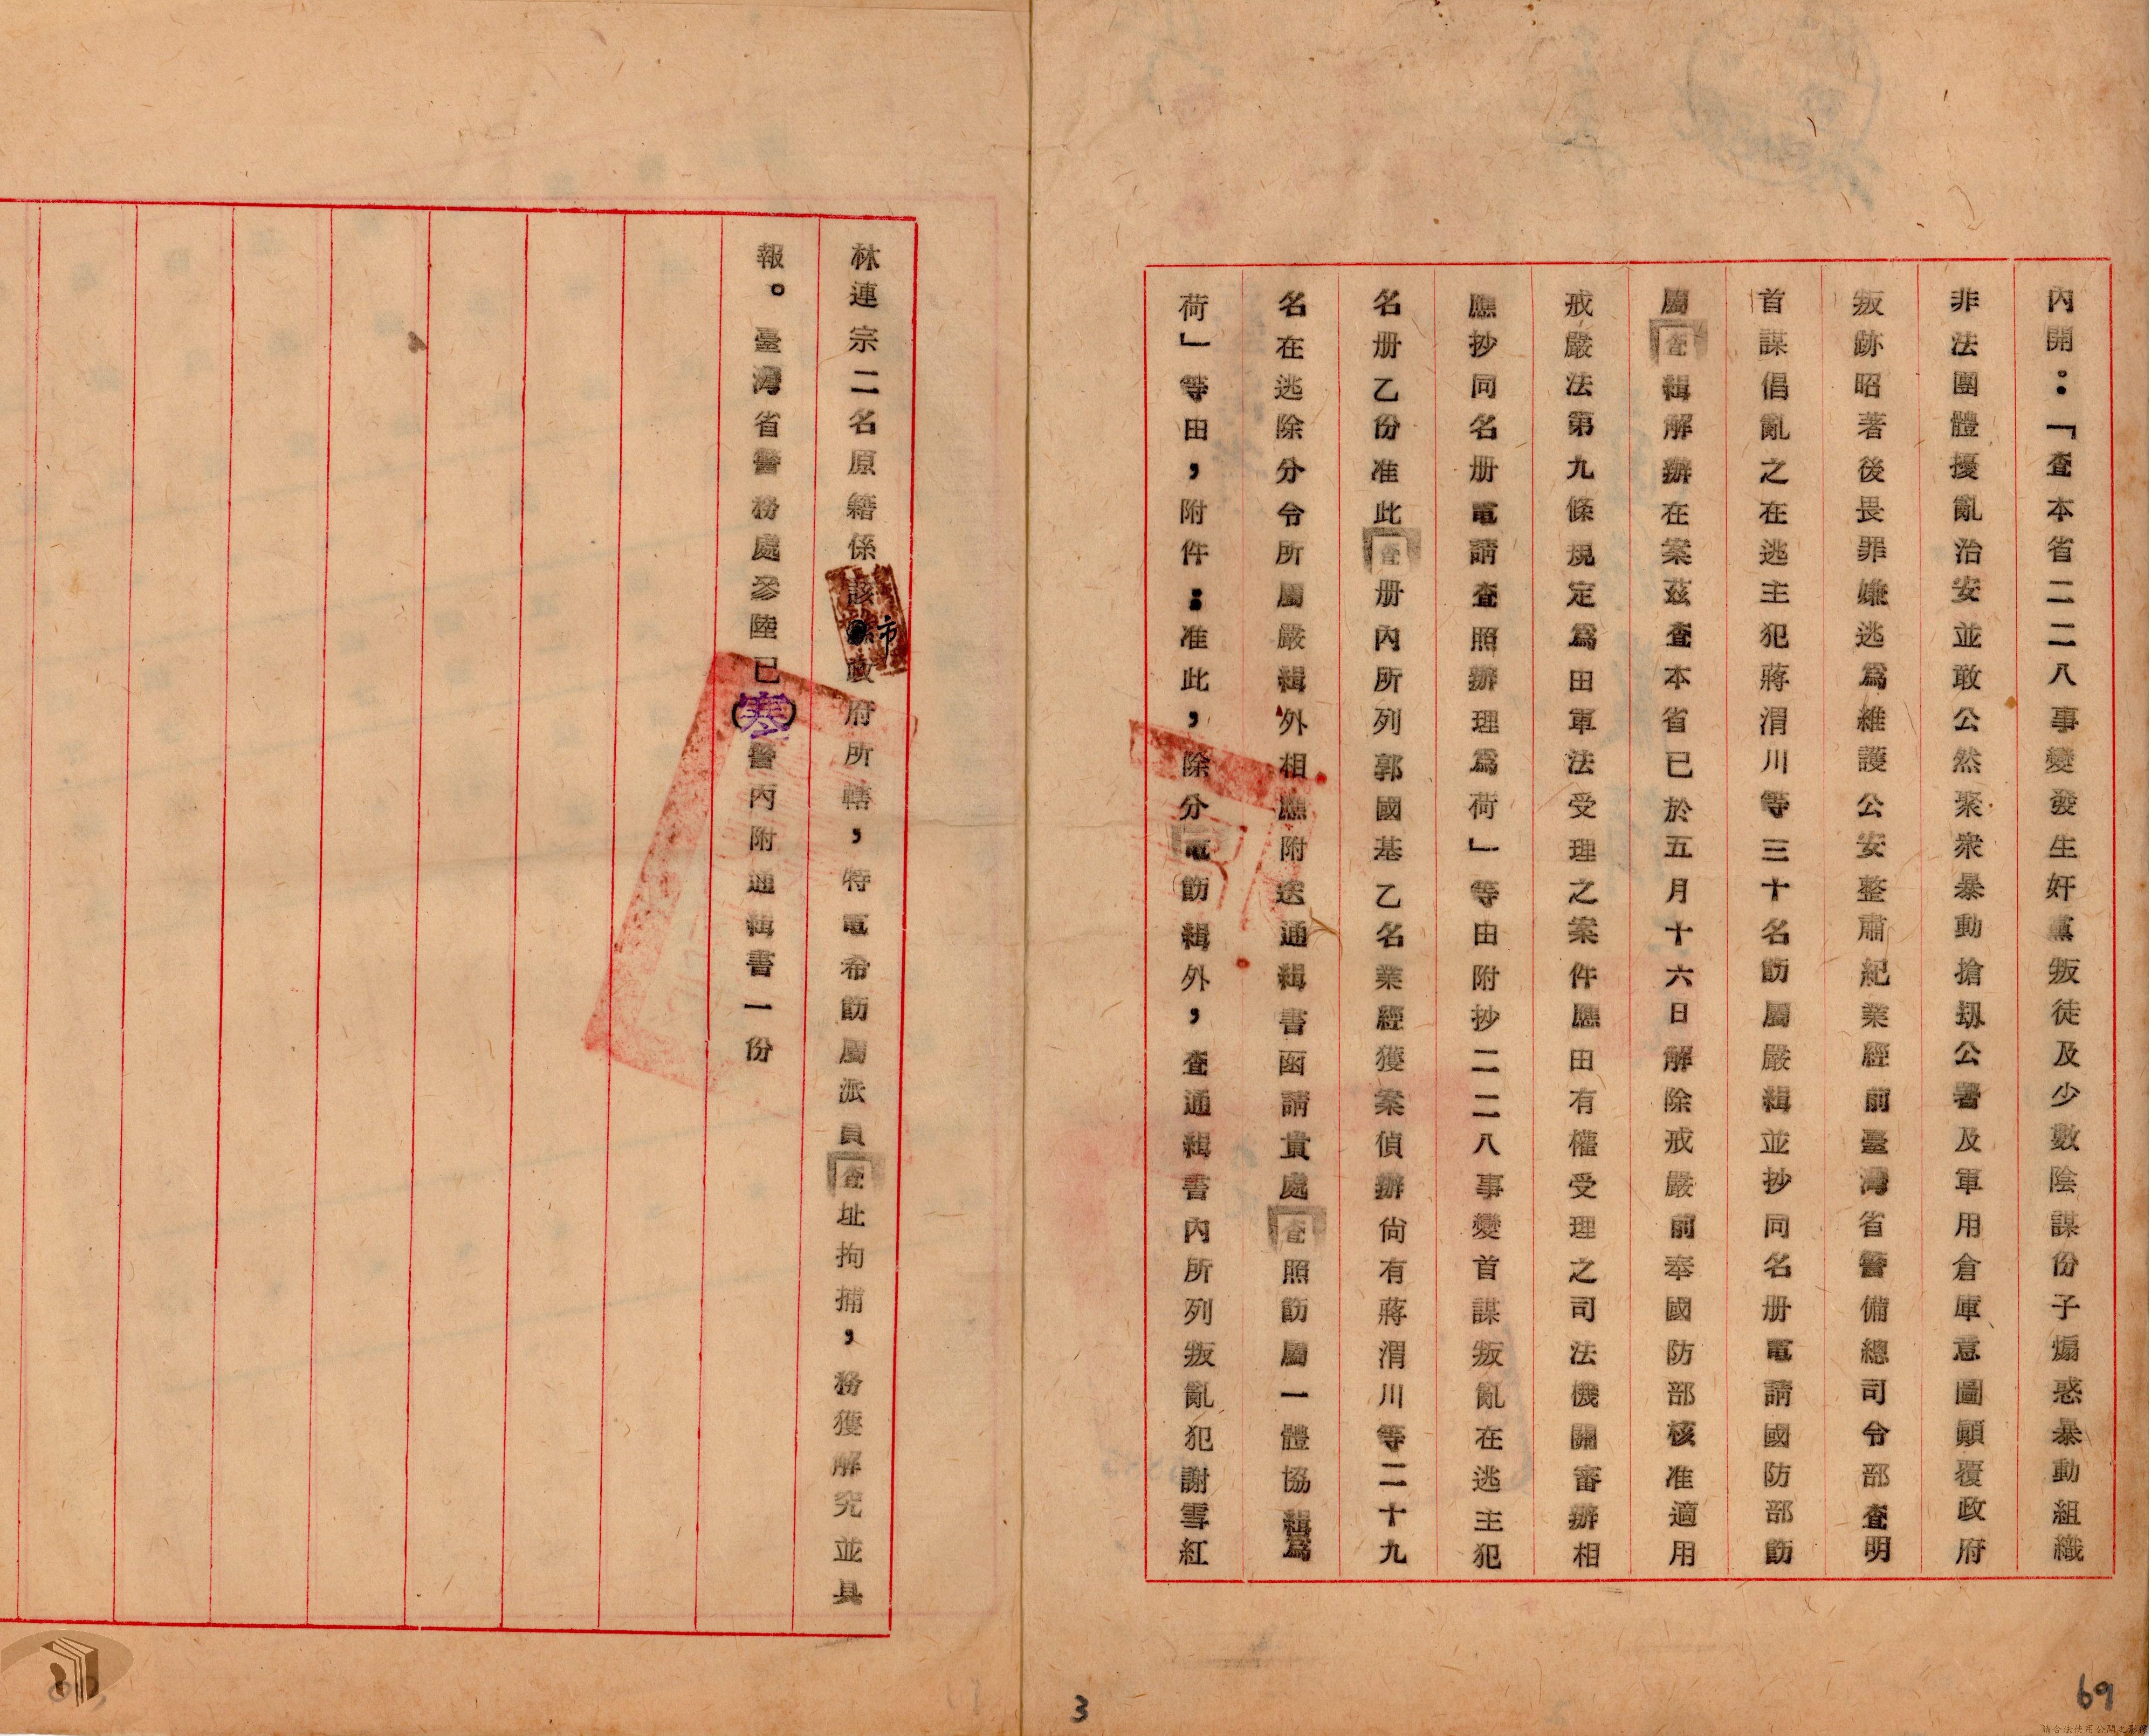 內開：「查本省二二八事變發生奸黨叛徒及少數陰謀份子煽惑暴動組織
非法團體擾亂治安並敢公然聚衆暴動搶刼公署及軍用倉庫意圖顚覆政府
叛跡昭著後畏罪嫌逃爲維護公安整肅紀業經前臺灣省警備總司令部查明
首謀倡亂之在逃主犯蔣渭川等三十名飭屬嚴緝並抄同名册電請國防部飭
屬查緝解辦在案茲查本省已於五月十六日解除戒嚴前奉國防部核准適用
戒嚴法第九條規定爲由軍法受理之案件應由有權受理之司法機關審辦相
應抄同名册電請查照辦理爲荷」等由附抄二二八事變首謀叛亂在逃主犯
名册乙份准此查册內所列郭國基乙名業經獲案偵辦尙有蔣渭川等二十九
名在逃除分令所屬嚴緝外相應附送通緝書函請貴處查照飭屬一體協緝爲
荷」等由，附件：准此，除分電飭緝外，查通緝書內所列叛亂犯謝雪紅
林連宗二名原籍係該市政府所轄，特電希飭屬派員查址拘捕，務獲解究並具
報。臺灣省警務處參陸巳(寒)警丙附通緝書一份
3
69
請合法使用公開之影像